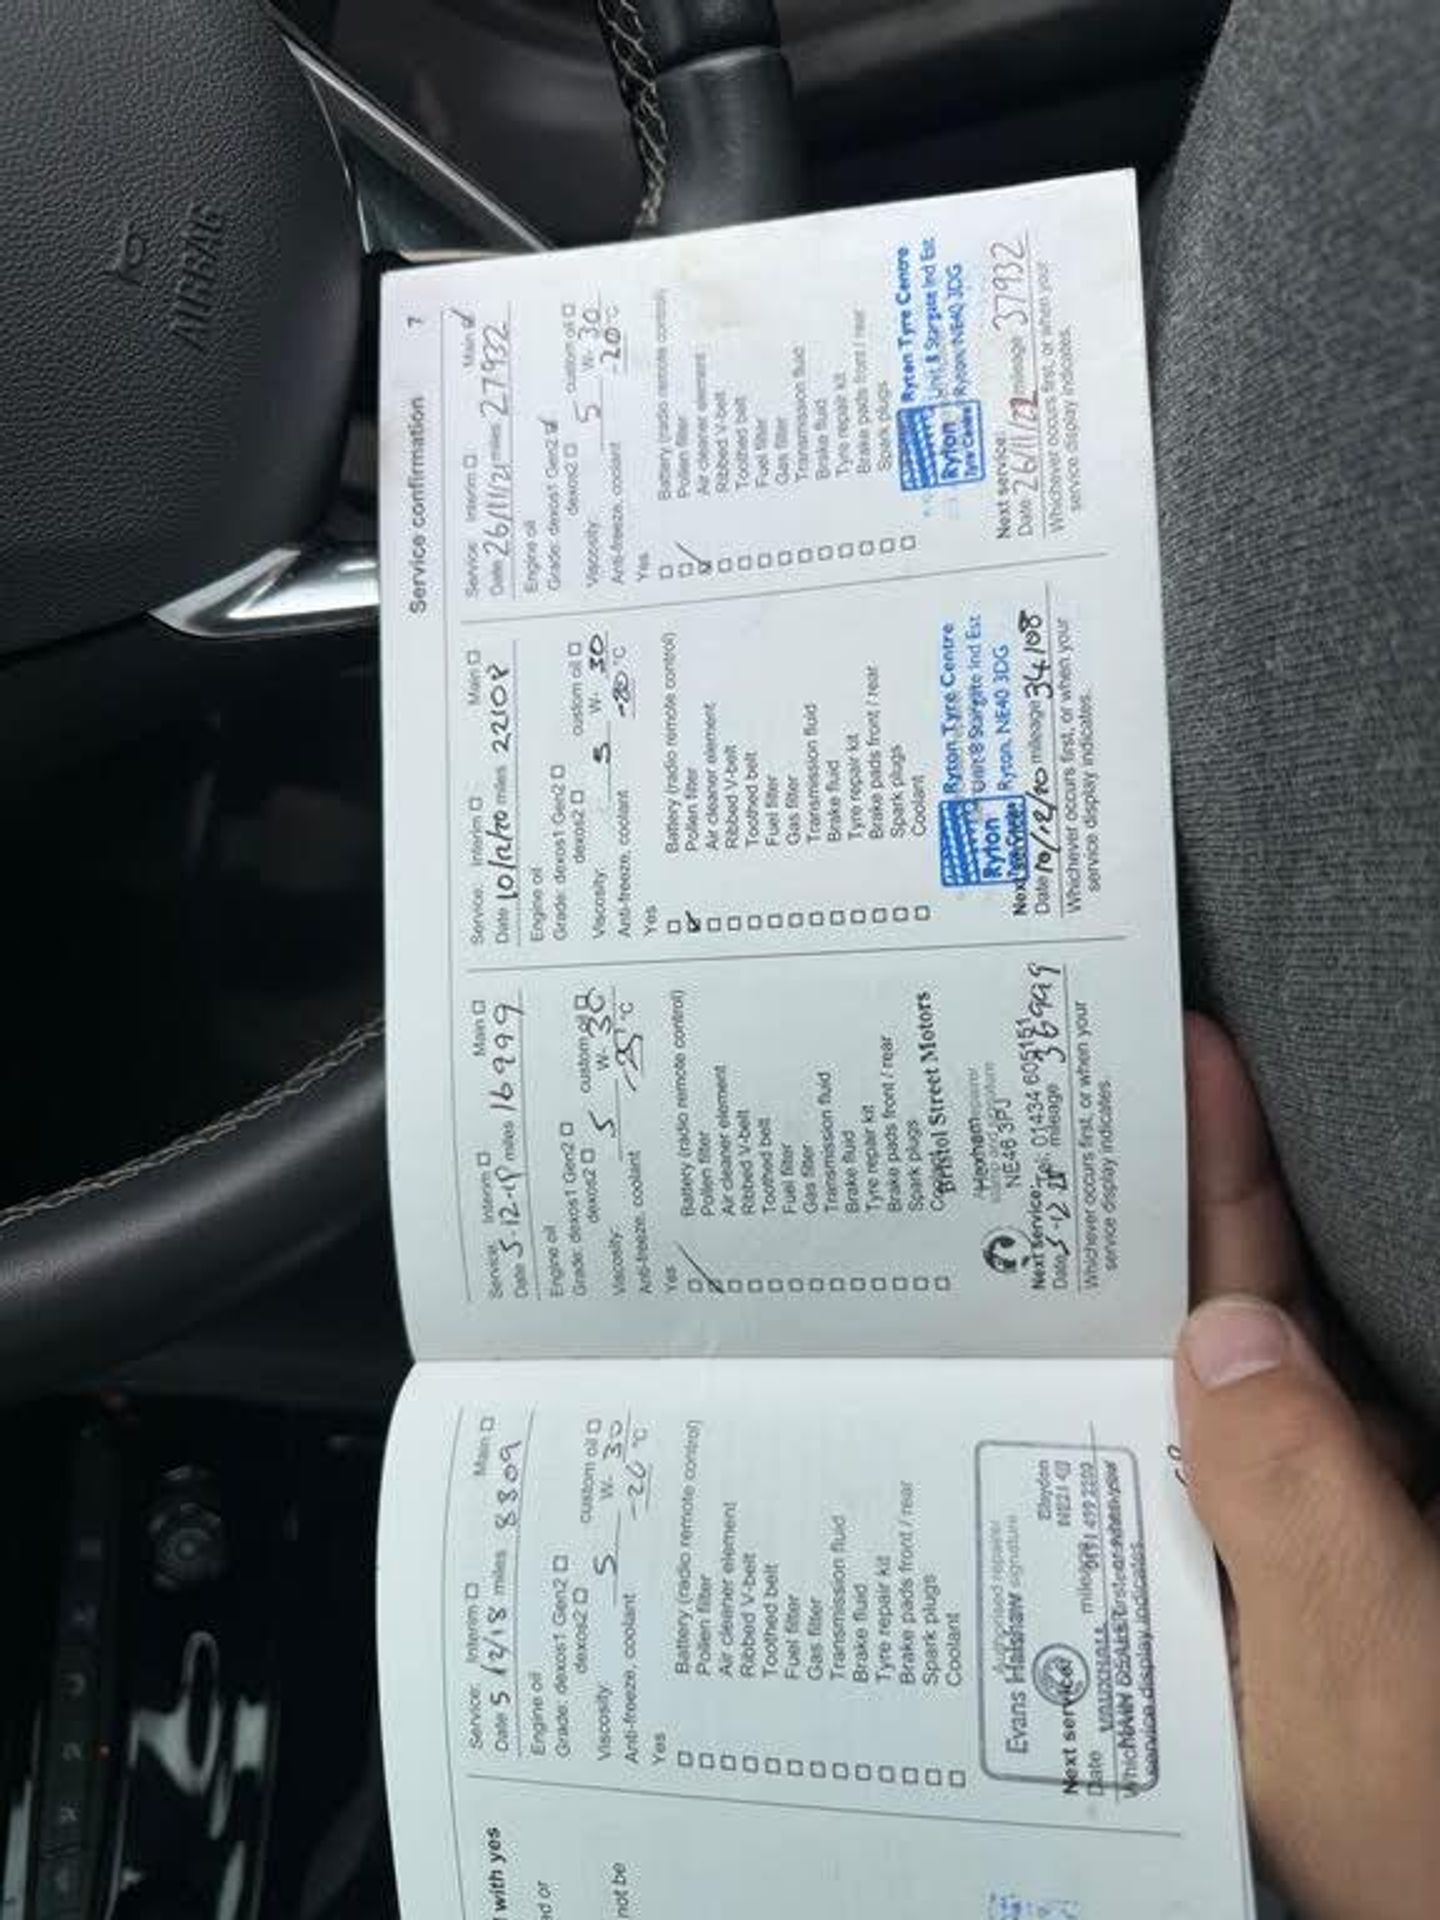 AIRBAG
with yes
ed or
not be
Service: Interim Main
Date 5/2/18 miles 8809
Engine oil
Grade: dexos1 Gen2
dexos2 custom oil
Viscosity 5 W- 30
Anti-freeze, coolant -20 °C
Yes
Battery (radio remote control)
Pollen filter
Air cleaner element
Ribbed V-belt
Toothed belt
Fuel filter
Gas filter
Transmission fluid
Brake fluid
Tyre repair kit
Brake pads front / rear
Spark plugs
Coolant
Authorised repairer
Evans Halshaw signature
Blaydon
Next service:
Date mileage
VAUXHALL
MAIN DEALER
service display indicates.
Service: Interim Main
Date 5.12.19 miles 16999
Engine oil
Grade: dexos1 Gen2
dexos2 custom oil
Viscosity: 5 W- 30
Anti-freeze, coolant -25 °C
Yes
Battery (radio remote control)
Pollen filter
Air cleaner element
Ribbed V-belt
Toothed belt
Fuel filter
Gas filter
Transmission fluid
Brake fluid
Tyre repair kit
Brake pads front / rear
Spark plugs
Bristol Street Motors
Hexham
NE46 3PJ
Tel: 01434 605151
Next service:
Date mileage 36999
Whichever occurs first, or when your
service display indicates.
Service confirmation 7
Service: Interim Main
Date 10/12/20 miles 22108
Engine oil
Grade: dexos1 Gen2
dexos2 custom oil
Viscosity: 5 W- 30
Anti-freeze, coolant -20 °C
Yes
Battery (radio remote control)
Pollen filter
Air cleaner element
Ribbed V-belt
Toothed belt
Fuel filter
Gas filter
Transmission fluid
Brake fluid
Tyre repair kit
Brake pads front / rear
Spark plugs
Coolant
Ryton Tyre Centre
Unit 8 Stargate Ind Est
Ryton Ryton. NE40 3DG
Tyre Centre
Date 10/12/20 mileage 34108
Whichever occurs first, or when your
service display indicates.
Service: Interim Main
Date 26/11/21 miles 27932
Engine oil
Grade: dexos1 Gen2
dexos2 custom oil
Viscosity 5 W- 30
Anti-freeze, coolant -20 °C
Yes
Battery (radio remote control)
Pollen filter
Air cleaner element
Ribbed V-belt
Toothed belt
Fuel filter
Gas filter
Transmission fluid
Brake fluid
Tyre repair kit
Brake pads front / rear
Spark plugs
Ryton Tyre Centre
Unit 8 Stargate Ind Est
Ryton Ryton NE40 3DG
Tyre Centre
Next service:
Date 26/11/22 mileage 37932
Whichever occurs first, or when your
service display indicates.